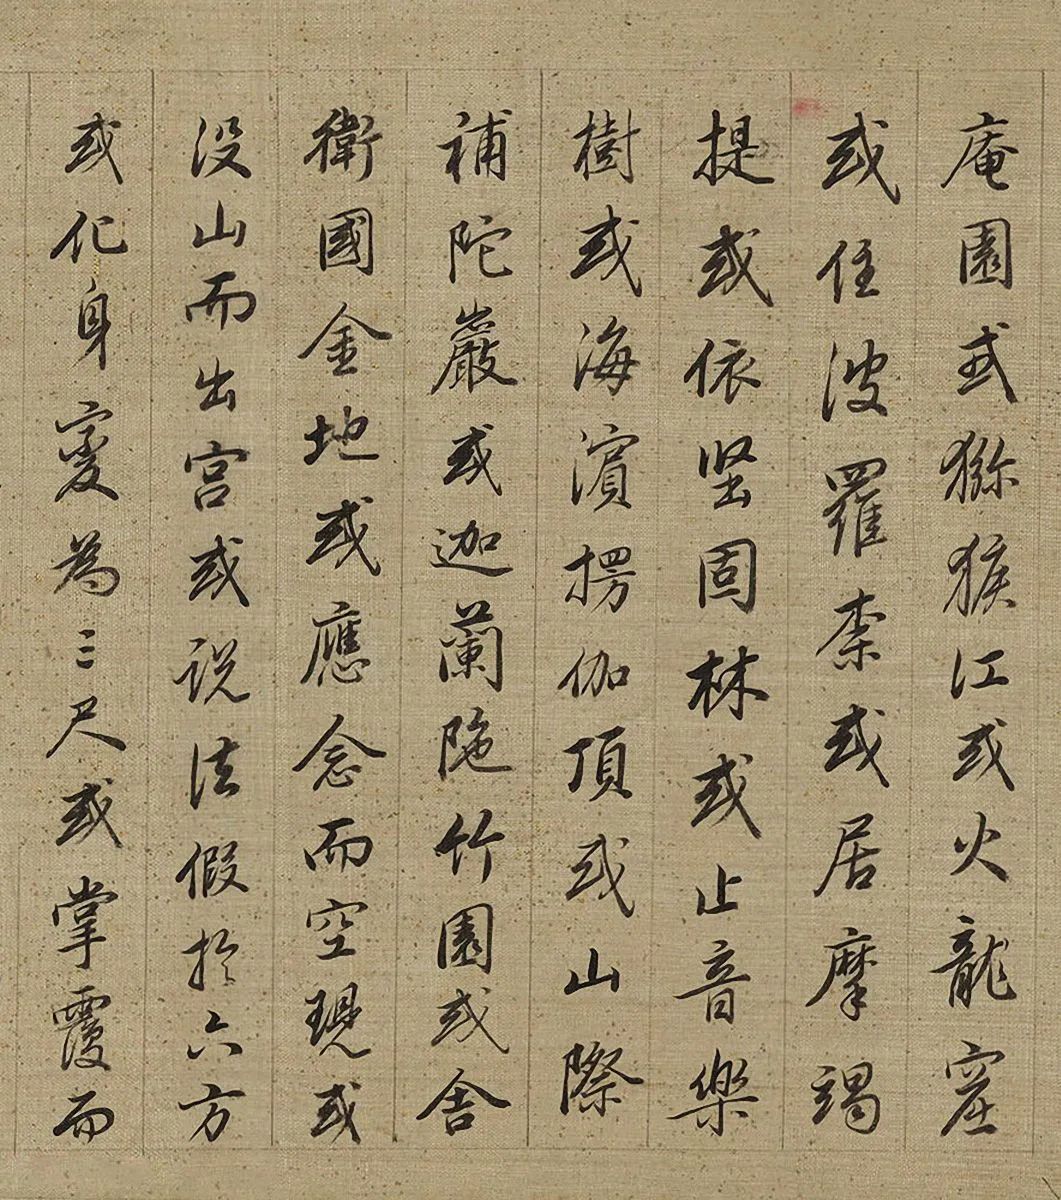 庵園或獼猴江或火龍窟
或住波羅柰或居摩竭
提或依堅固林或止音樂
樹或海濱楞伽頂或山際
補陀巖或迦蘭陁竹園或舍
衛國金地或應念而空現或
没山而出宫或説法假於六方
或化身變為三尺或掌覆而